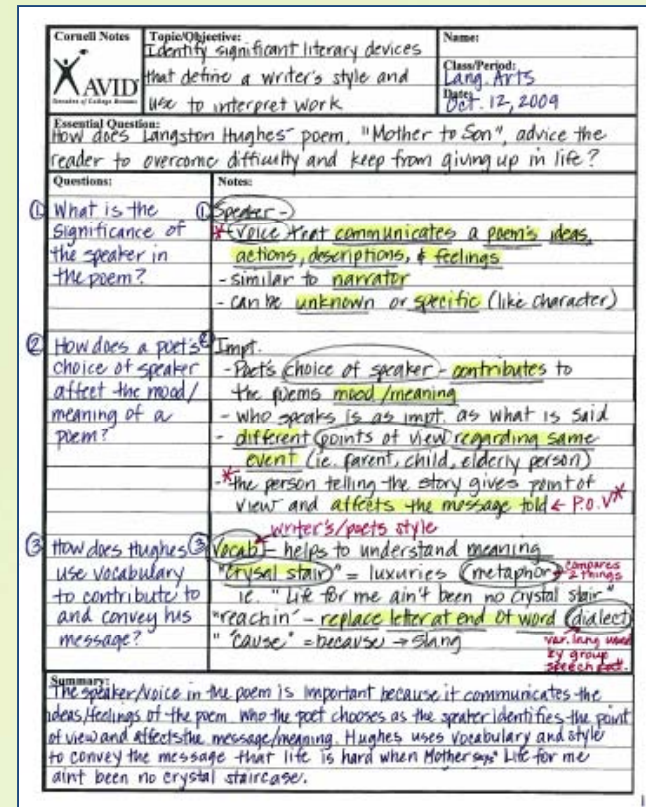 Cornell Notes
AVID
Decades of College Dreams
Topic/Objective:
Identify significant literary devices
that define a writer's style and
use to interpret work
Name:
Class/Period:
Lang. Arts
Date:
Oct. 12, 2009
Essential Question:
How does Langston Hughes' poem, "Mother to Son", advice the
reader to overcome difficulty and keep from giving up in life?
Questions:
① What is the
significance of
the speaker in
the poem?
② How does a poet's
choice of speaker
affect the mood/
meaning of a
poem?
③ How does Hughes
use vocabulary
to contribute to
and convey his
message?
Notes:
① Speaker -
* (voice) that communicates a poem's ideas,
actions, descriptions, & feelings
- similar to narrator
- can be unknown or specific (like character)
② Impt.
- Poet's choice of speaker - contributes to
the poems mood/meaning
- who speaks is as impt. as what is said
- different points of view regarding same
event (ie. parent, child, elderly person)
*- the person telling the story gives point of
view and affects the message told ← P.O.V*
writer's/poets style
③ Vocab - helps to understand meaning
"crysal stair" = luxuries (metaphor) → compares
2 things
ie. "Life for me ain't been no crystal stair"
"reachin' - replace letter at end of word (dialect)
" 'cause" = because → slang
var. lang used
by group
speech pat.
Summary:
The speaker/voice in the poem is important because it communicates the
ideas/feelings of the poem. Who the poet chooses as the speaker identifies the point
of view and affects the message/meaning. Hughes uses vocabulary and style
to convey the message that life is hard when Mother says "Life for me
aint been no crystal staircase.